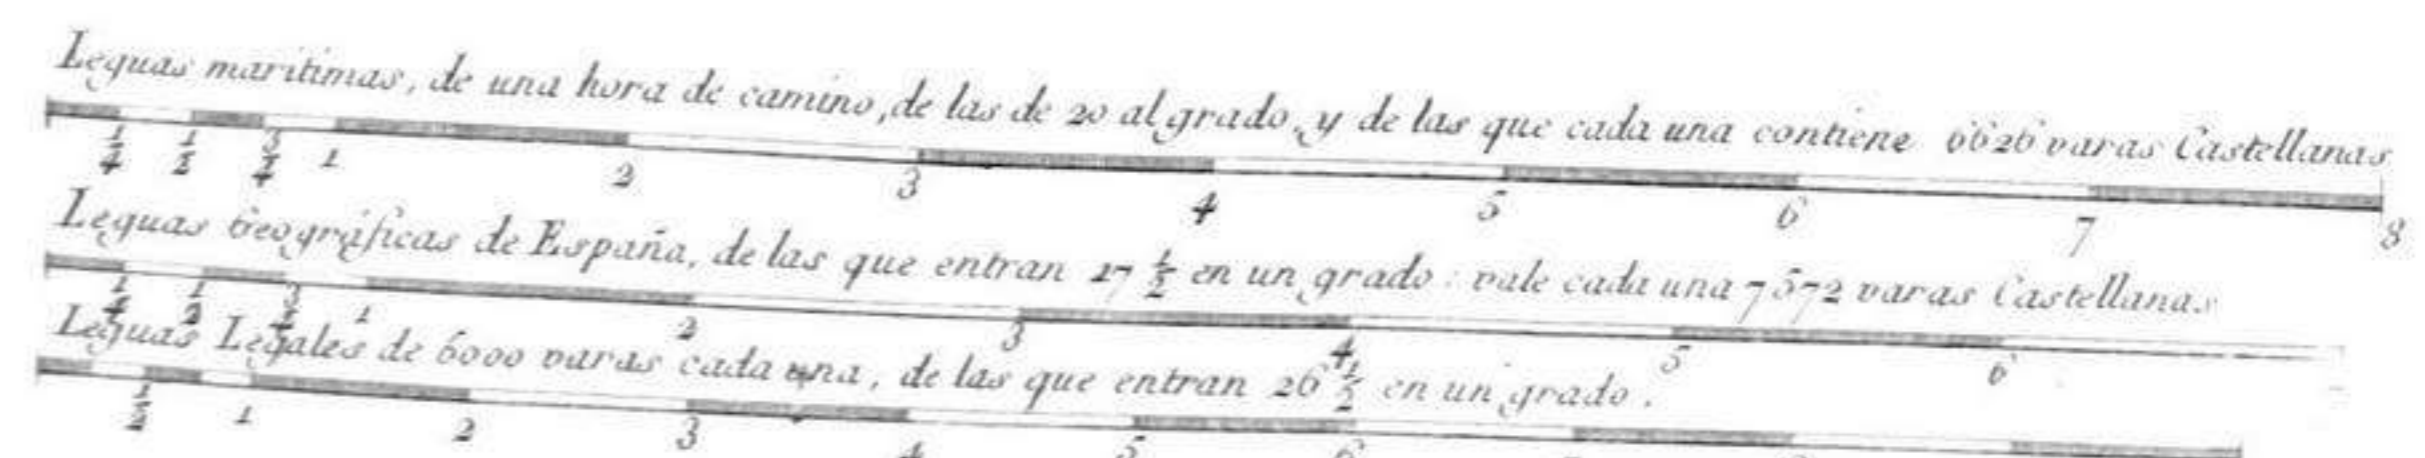 Leguas maritimas, de una hora de camino, de las de 20 al grado, y de las que cada una contiene 6626 varas Castellanas
1/4 1/2 3/4 1 2 3 4 5 6 7 8
Leguas Geográficas de España, de las que entran 17 1/2 en un grado: vale cada una 7572 varas Castellanas
1/4 1/2 3/4 1 2 3 4 5 6
Leguas Legales de 5000 varas cada una, de las que entran 26 1/2 en un grado.
1/2 1 2 3 4 5 6